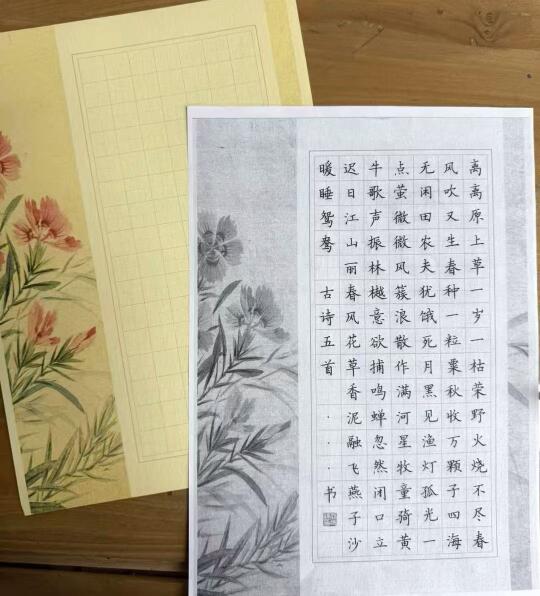 离离原上草一岁一枯荣野火烧不尽春
风吹又生春种一粒粟秋收万颗子四海
无闲田农夫犹饿死月黑见渔灯孤光一
点萤微微风簇浪散作满河星牧童骑黄
牛歌声振林樾意欲捕鸣蝉忽然闭口立
迟日江山丽春风花草香泥融飞燕子沙
暖睡鸳鸯 古诗五首 · · · 书